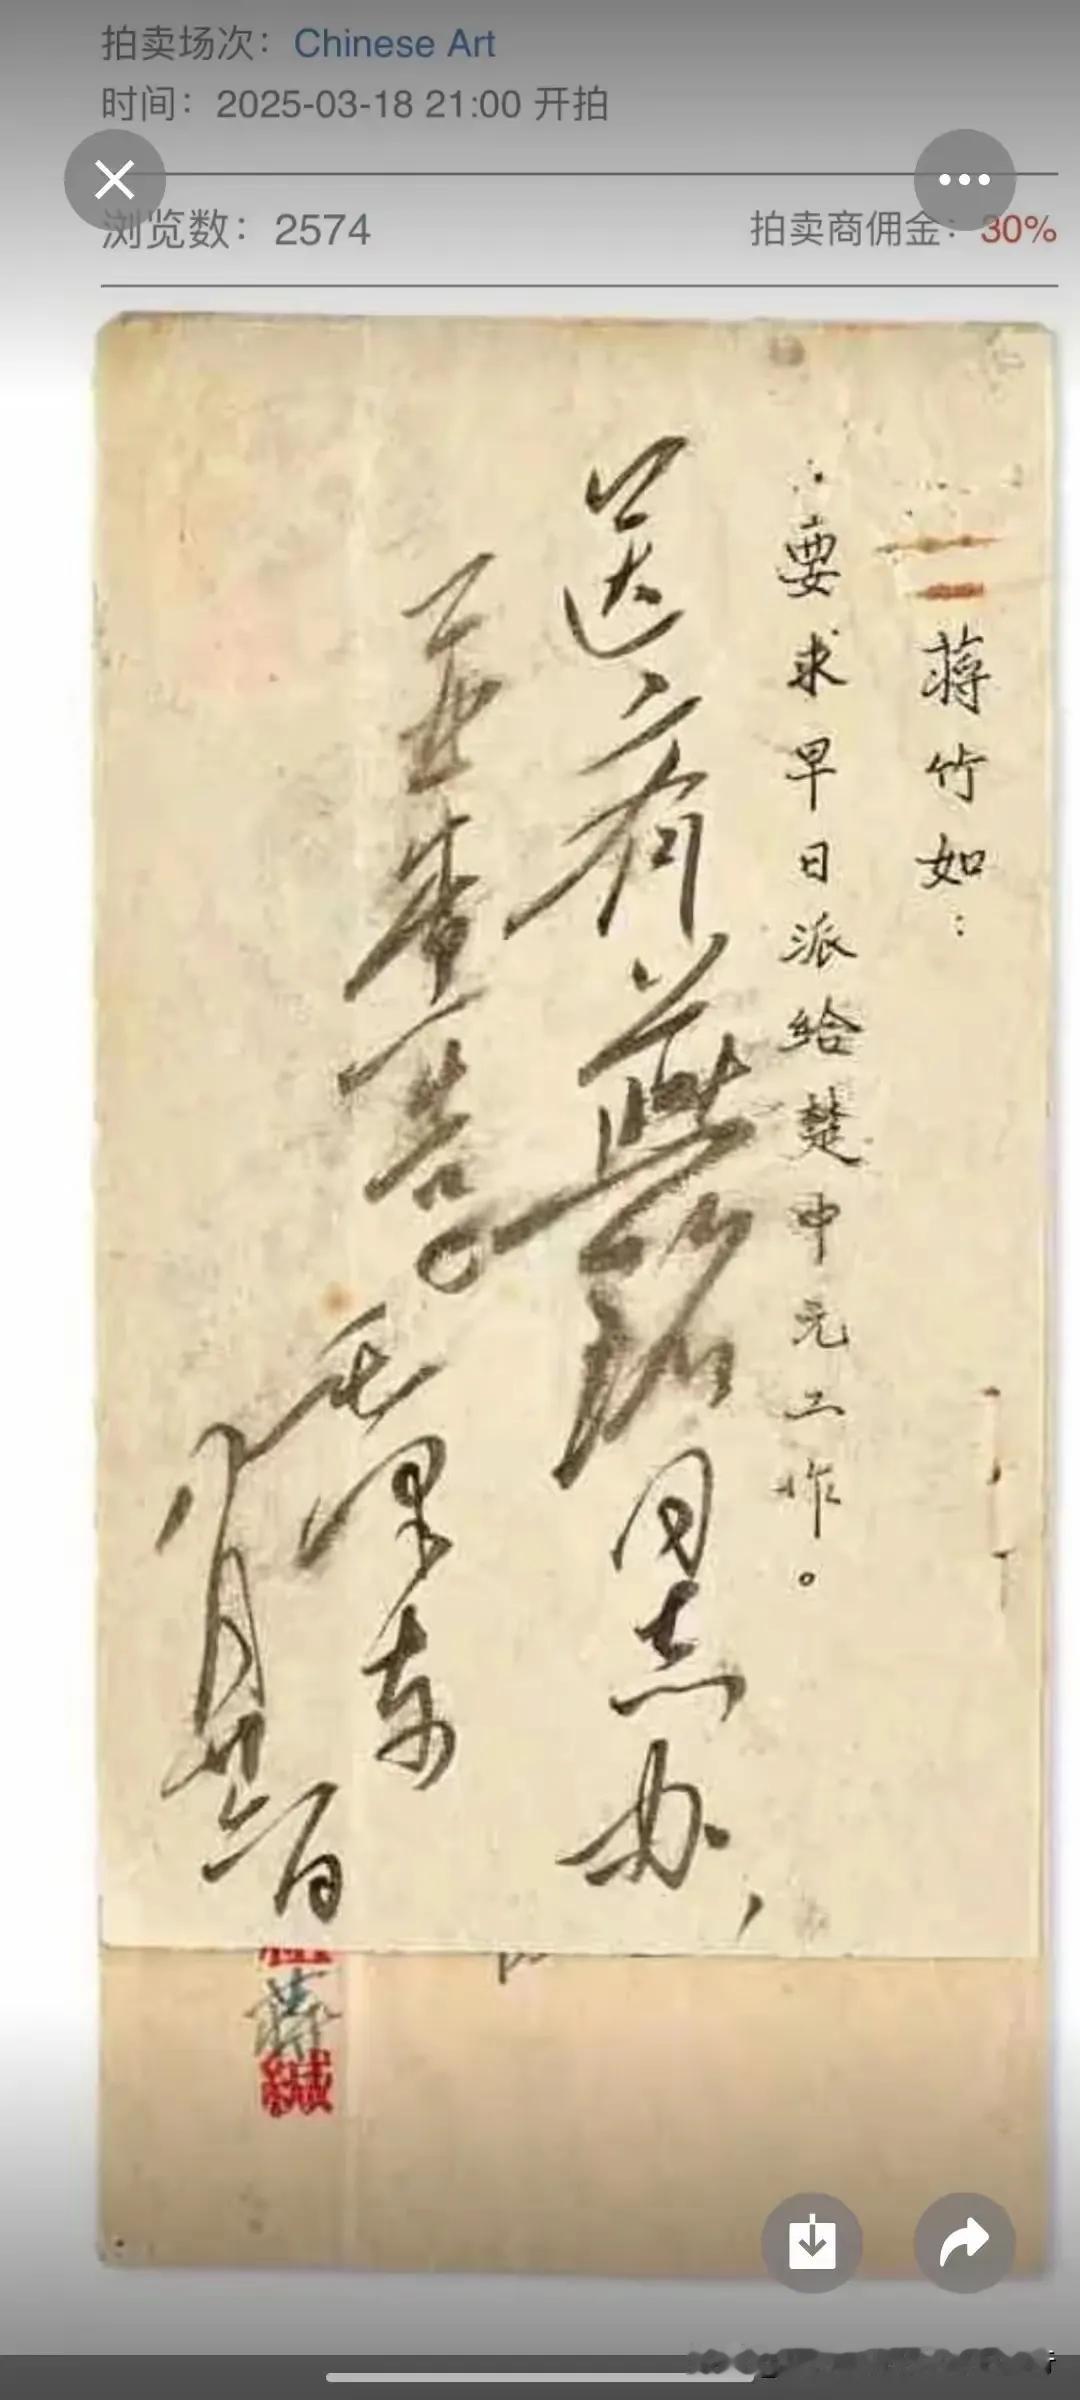 拍卖场次：Chinese Art
时间：2025-03-18 21:00 开拍
浏览数：2574
拍卖商佣金：30%
蒋竹如：
要求早日派给楚中元工作。
送齐燕铭同志办，
并查告。
毛泽东
八月廿六日
蒋